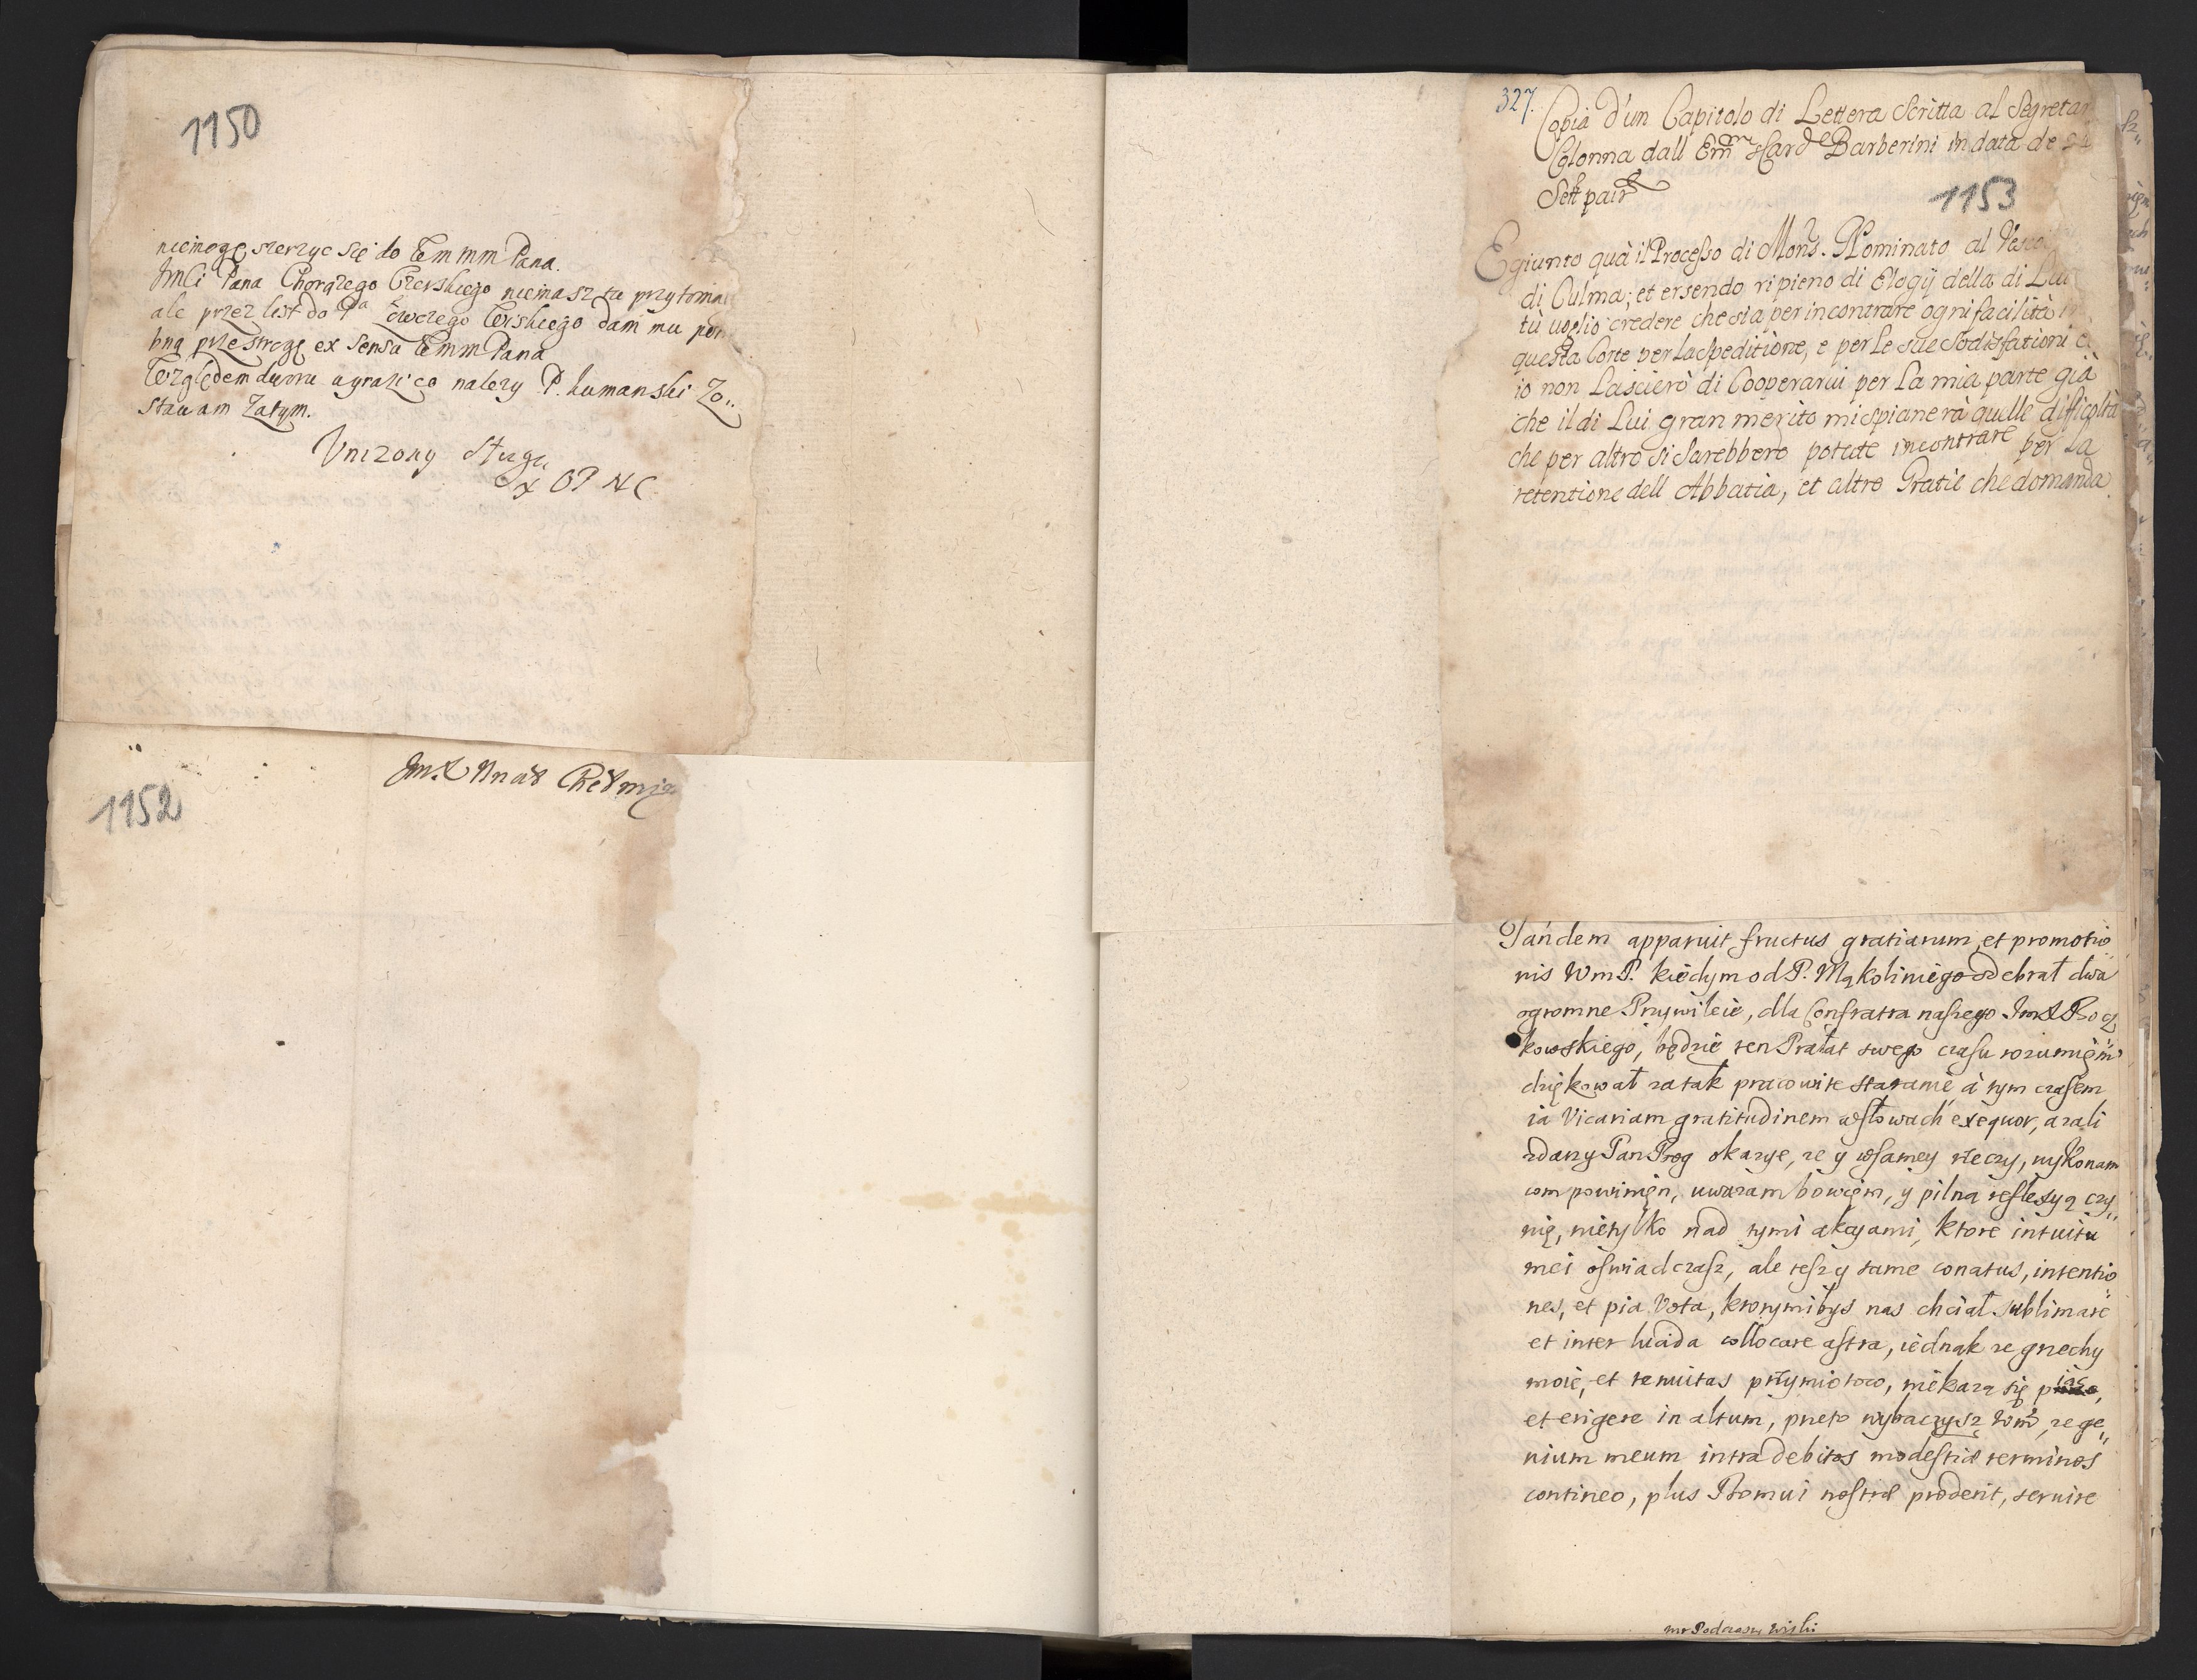 1150
niemogę szerzyc się do Wmm Pana.
Jmci Pana Chorązego Czerskiego niemasz tu
ale przez list do Pa Łowczego Wiskiego dam mu
bną przestrogę ex sensu Wmm Pana
Względem dworu a co nalezy P. Humanski Zo,,
stawam Zatym.
Vnizony Sługa
X OP NC
1152
Jm.X Nnat Chełmiz
327.
Copia d'un Capitolo di Lettera Scritta al Segretar
Colonna dall Emm Card Barberini in data de 24
Sett
1153
E giunto quà il Processo di Mons. Nominato al Vesco
di Culma; et essendo ripieno di Elogij della di Lui
tù uoglio credere che sia per incontrare ogni facilità in
questa Corte per la Speditione, e per le sue Sodisfationi e
io non Lascierò di Cooperarui per La mia parte già
che il di Lui gran merito mi spianerà quelle difficoltà
che per altro si Sarebbero potute incontrare per La
retentione dell Abbatia, et altre Gratie che domanda.
Tandem apparuit fructus gratiarum, et promotio
nis WmP. kiedym od P. Mąkoliniego odebrał dwa
ogromne Przywileie, dla Confratra naszego JmX Bocz
kowskiego, będzie ten Prałat swego czasu rozumięm
dziękował za tak pracowite staranie a tym czasem
ia Vicariam gratitudinem w słowach exequor, azali
zdarzy Pan Bog okazye, ze y w samey rzeczy, wykonam
com powinięn, uwazam bowięm, y pilną reflexyą czy,,
nię, nietylko nad tymi akcyami, ktore intuitu
mei oswiadczasz, ale tesz y same conatus, intentio
nes, et pia Vota, ktorymibys nas chciał sublimare
et inter lucida collocare astra, iednak ze grzechy
moie, et tenuitas przymiotow, niekazą się piąc,
et erigere in altum, przeto wybaczysz WmP, ze ge,,
nium meum intra debitos modestiæ terminos
contineo, plus Domui nostræ proderit, seruire
mr Podczaszy Wiski